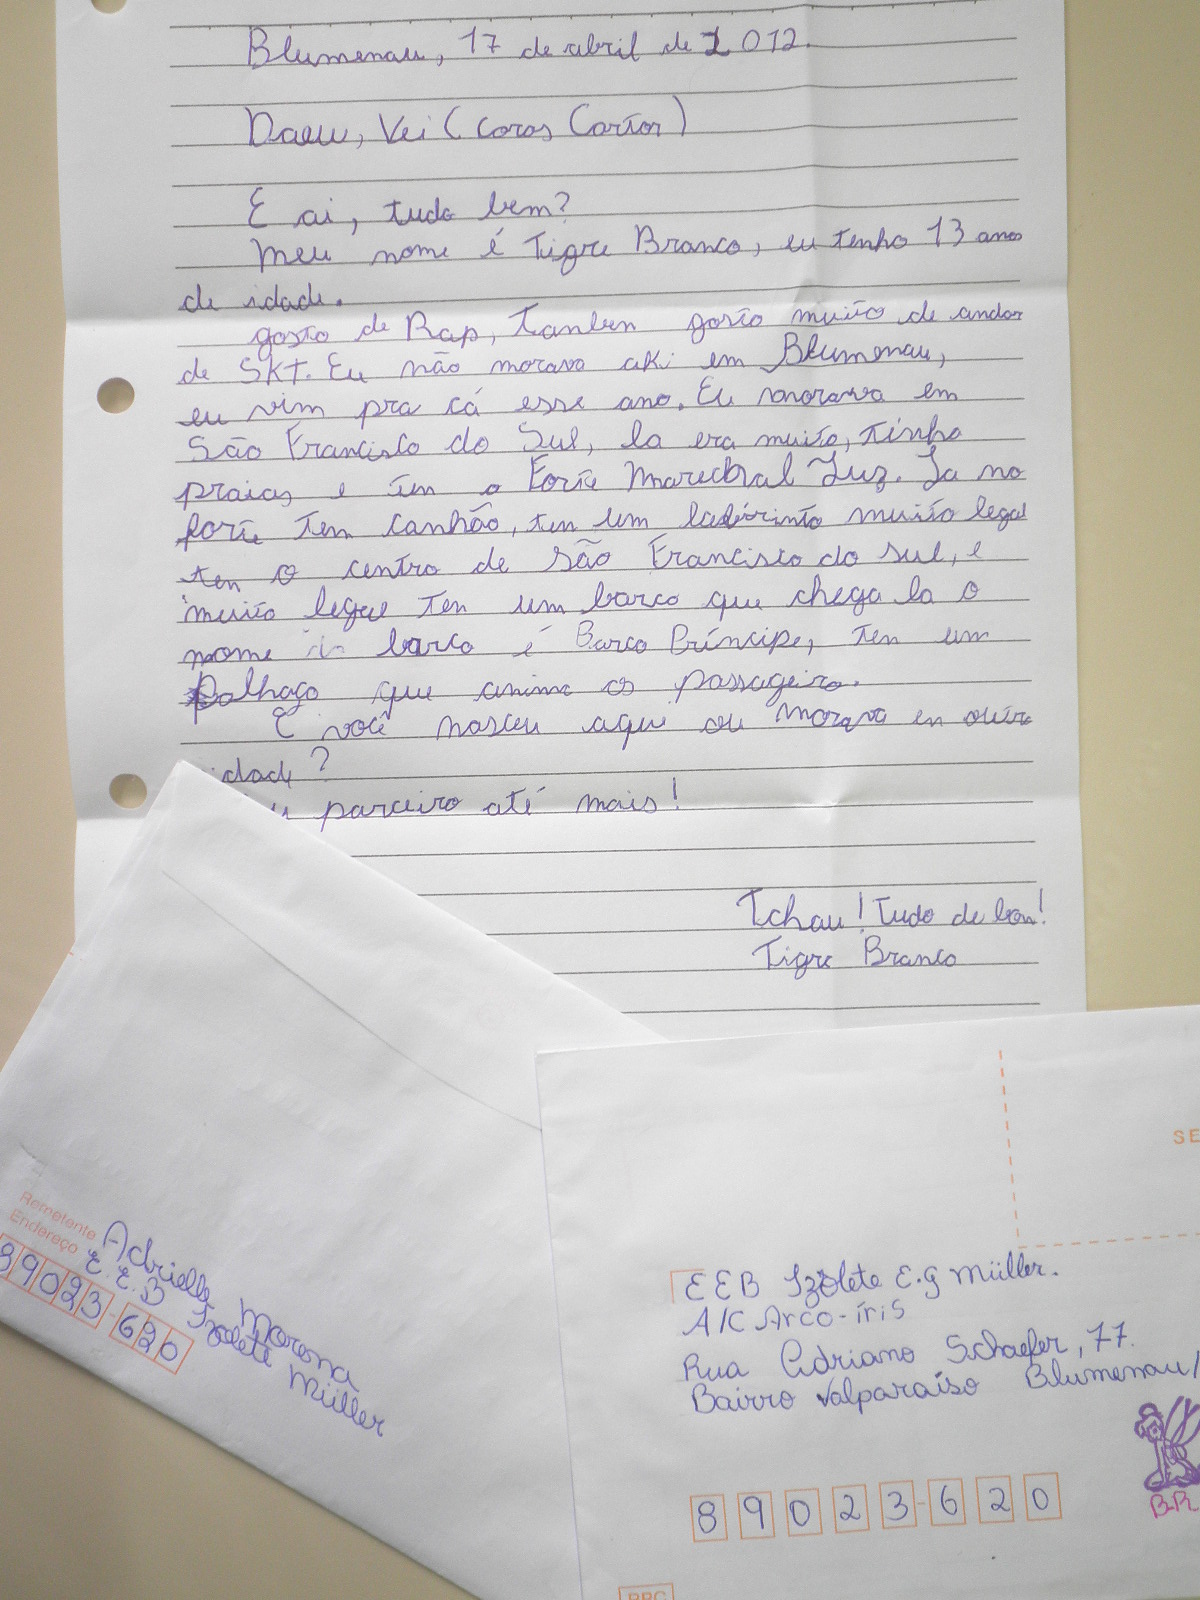 Blumenau, 17 de abril de 2012.
Daew, Vei (Coros Cartor)
E ai, tudo bem?
Meu nome é Tigre Branco, eu tenho 13 anos
de idade.
gosto de Rap, Tanben gosto muito de andar
de SKT. Eu não morava aki em Blumenau,
eu vim pra cá esse ano. Eu morava em
São Francisco do Sul, la era muito, tinha
praias e ten o Forte Marechal Luz. La no
forte tem canhão, ten um labirinto muito legal
ten o centro de São Francisco do sul, e
muito legal Ten um barco que chega la o
nome do barco é Barco Príncipe, ten um
Palhaço que anima os passageiro.
E você nasceu aqui ou morava en outra
idade?
parceiro até mais!
Tchau! Tudo de bon!
Tigre Branco
Remetente Adrielle Morona
Endereço E.E.B Izolete Müller
89023-620
SE
EEB Izolete E.G Müller.
A/C Arco-íris
Rua Adriano Schaefer, 77.
Bairro Valparaíso Blumenau/
89023-620
B.R
RPC